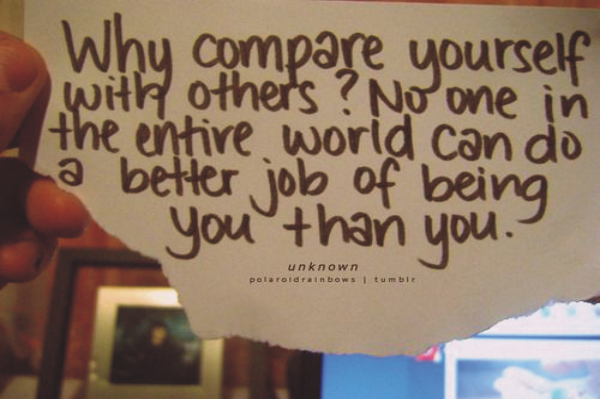 Why compare yourself
with others? No one in
the entire world can do
a better job of being
you than you.
unknown
polaroidrainbows | tumblr